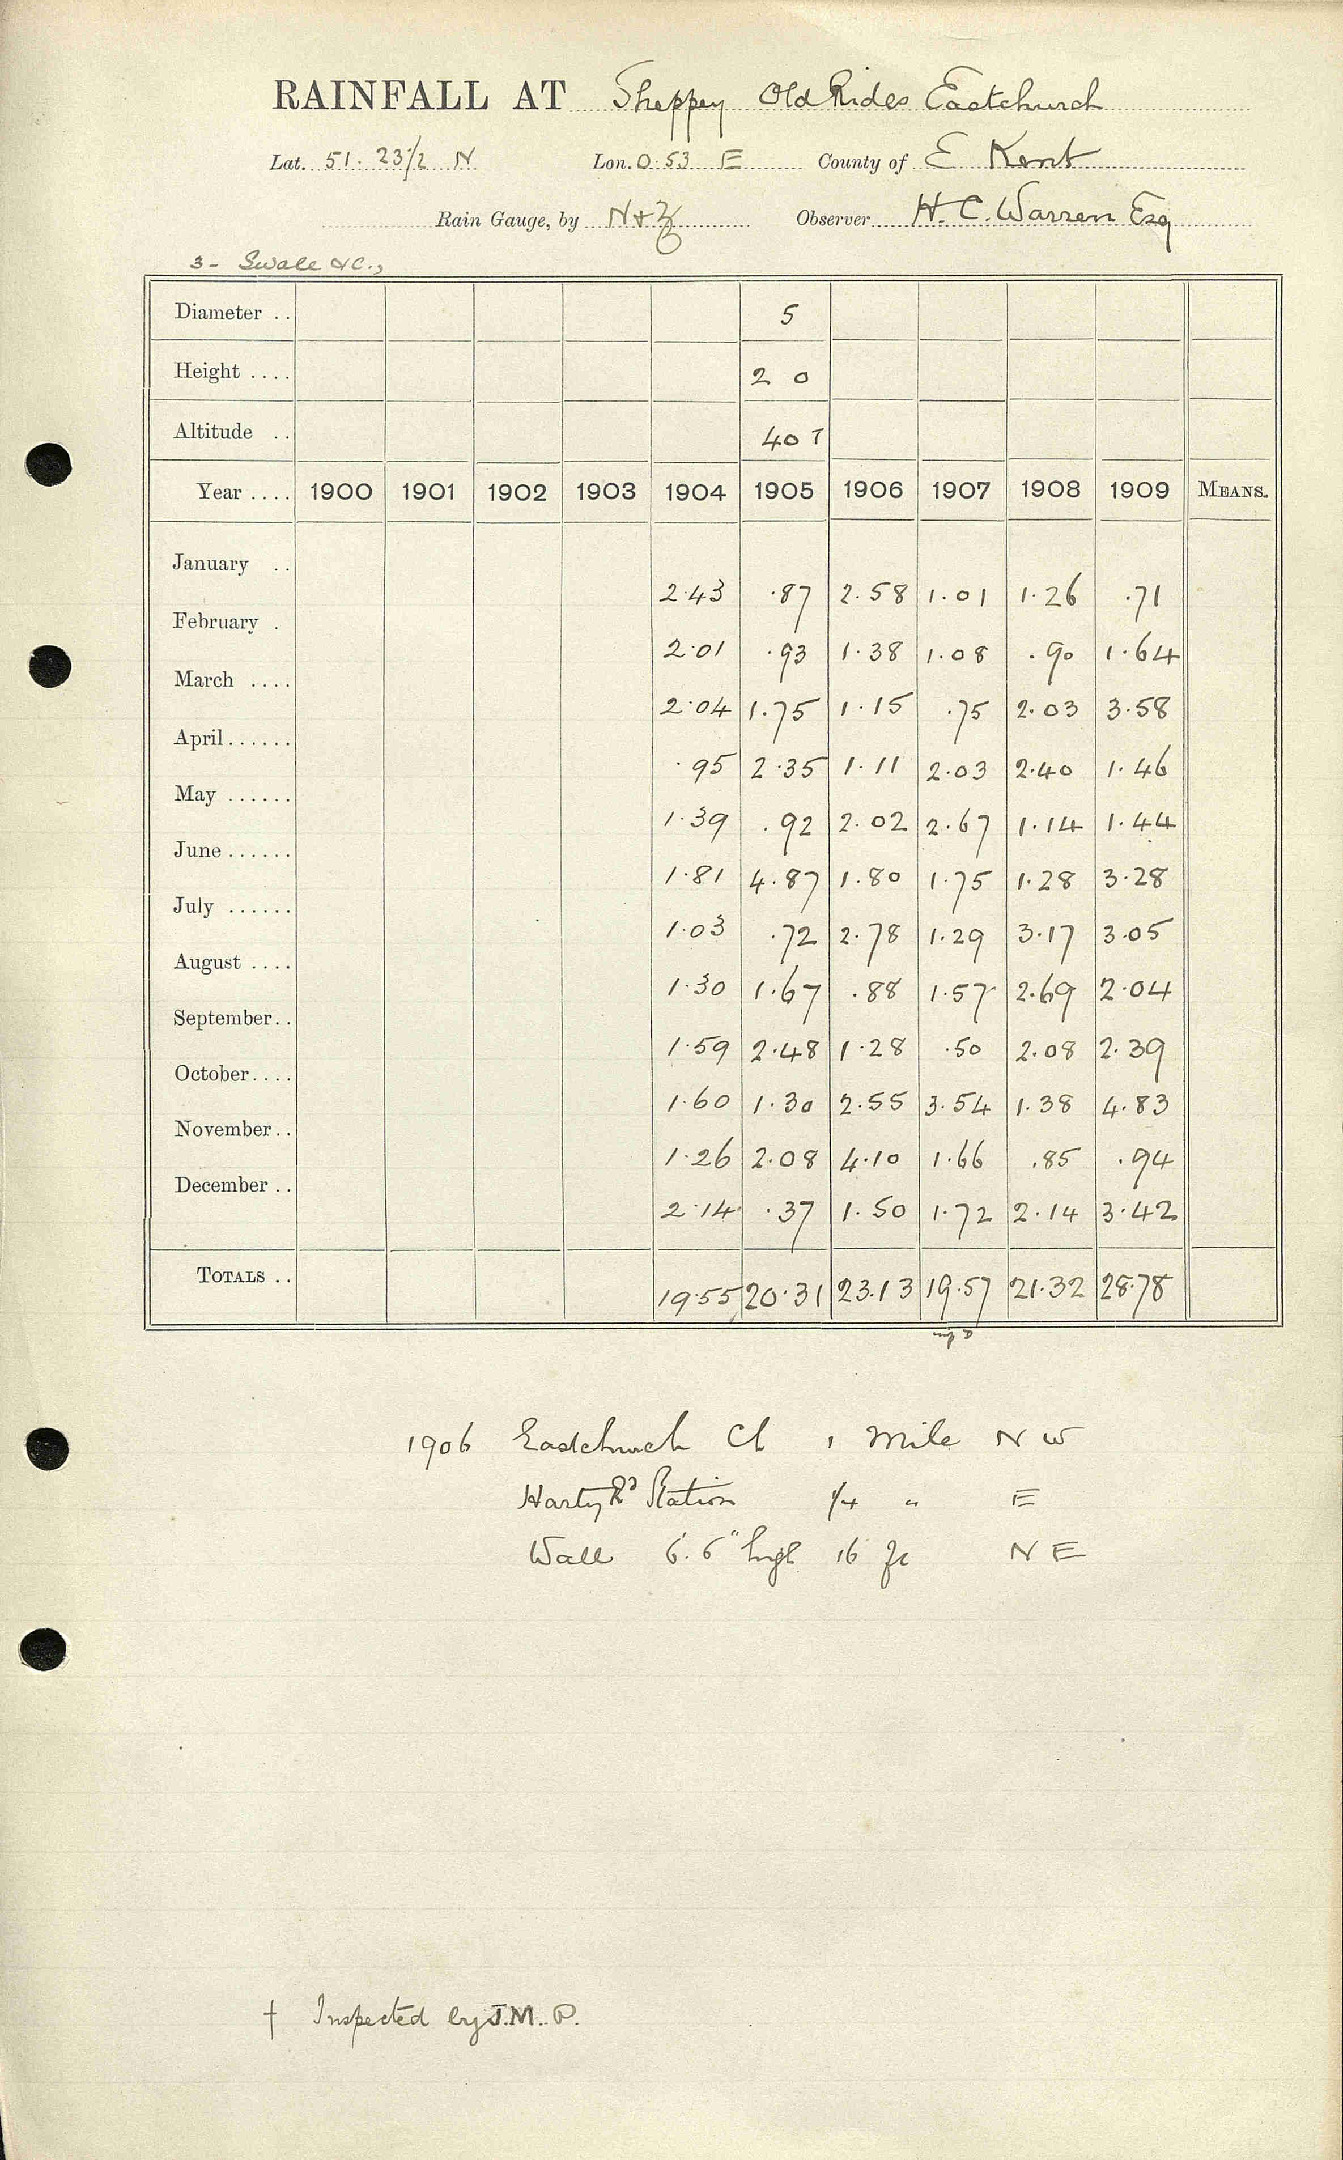 RAINFALL AT Sheppey Old Rides Eastchurch
Lat. 51. 23 1/2 N Lon. 0.53 E County of E Kent
Rain Gauge, by N+Z Observer H. C. Warren Esq
3 - Swale &c.,
Diameter .. 5
Height .... 2 0
Altitude .. 40 †
Year .... 1900 1901 1902 1903 1904 1905 1906 1907 1908 1909 MEANS.
January .. 2.43 .87 2.58 1.01 1.26 .71
February . 2.01 .93 1.38 1.08 .90 1.64
March .... 2.04 1.75 1.15 .75 2.03 3.58
April...... .95 2.35 1.11 2.03 2.40 1.46
May ...... 1.39 .92 2.02 2.67 1.14 1.44
June...... 1.81 4.87 1.80 1.75 1.28 3.28
July ...... 1.03 .72 2.78 1.29 3.17 3.05
August .... 1.30 1.67 .88 1.57 2.69 2.04
September.. 1.59 2.48 1.28 .50 2.08 2.39
October.... 1.60 1.30 2.55 3.54 1.38 4.83
November.. 1.26 2.08 4.10 1.66 .85 .94
December .. 2.14 .37 1.50 1.72 2.14 3.42
TOTALS .. 19.55 20.31 23.13 19.57 21.32 28.78
1906 Eastchurch Ch 1 Mile N W
Harty Rd Station 1/4 " E
Wall 6' 6" high 16 ft N E
† Inspected by J.M.P.